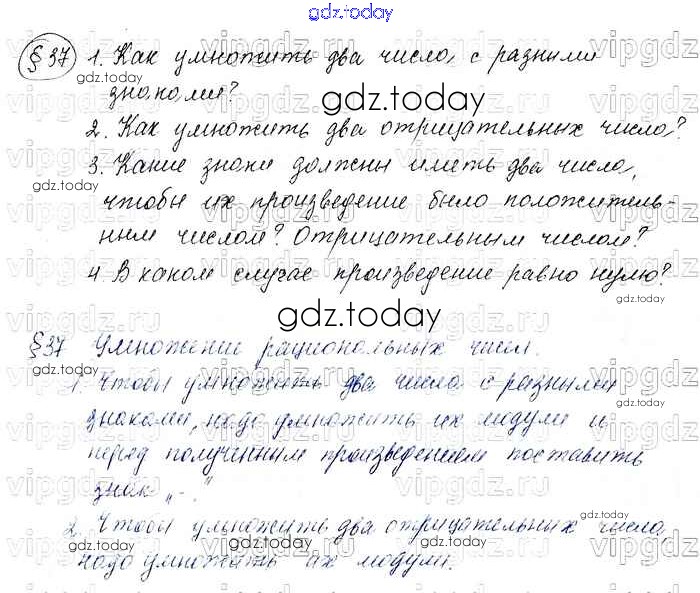 gdz.today
§37 1. Как умножить два числа, с разными
знаками?
2. Как умножить два отрицательных числа?
3. Какие знаки должны иметь два числа,
чтобы их произведение было положитель-
ным числом? Отрицательным числом?
4. В каком случае произведение равно нулю?
gdz.today
§37 Умножение рациональных чисел.
1. Чтобы умножить два числа с разными
знаками, надо умножить их модули и
перед полученным произведением поставить
знак „-“
2. Чтобы умножить два отрицательных числа,
надо умножить их модули.